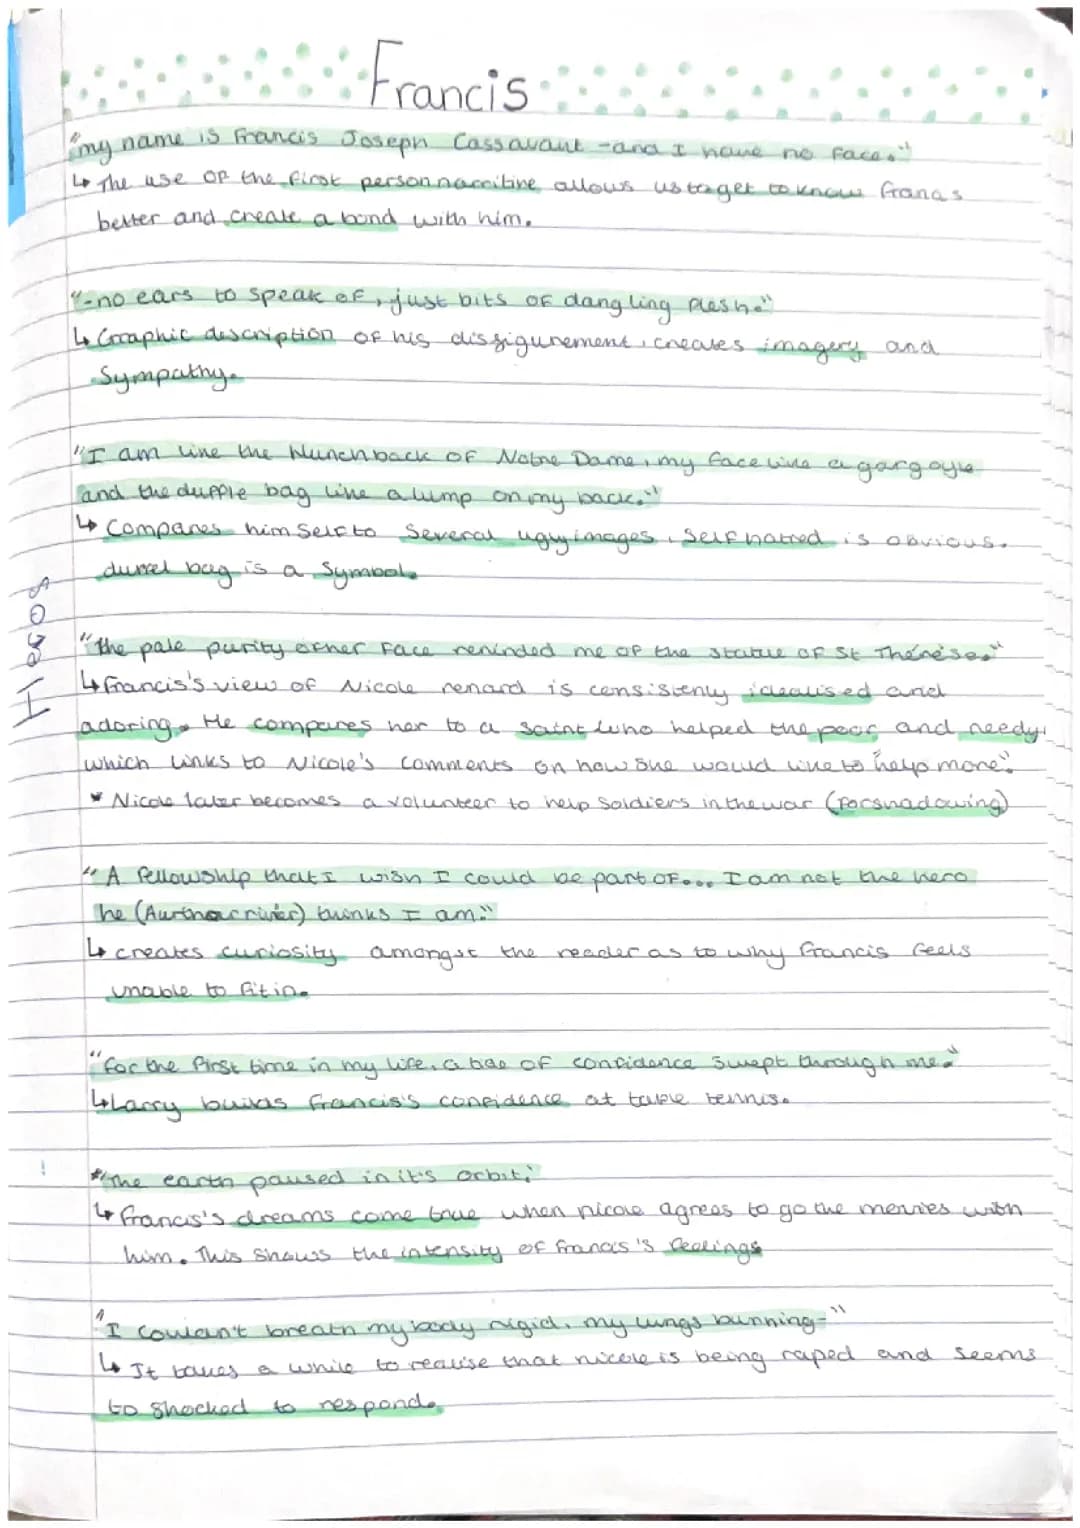 Francis
"my name is Francis Joseph Cassavant -and I have no face."
↳ The use of the first person narritive allows us to get to know francis
better and create a bond with him.
"-no ears to speak of, just bits of dangling flesh."
↳ Graphic description of his disfigurement, creates imagery and
Sympathy.
"I am like the Hunchback of Notre Dame, my face like a gargoyle
and the duffle bag like a lump on my back."
↳ Compares himself to several ugly images. Self hatred is obvious.
duffel bag is a symbol.
"the pale purity of her face reminded me of the statue of St Thérèse."
↳ Francis's view of Nicole renard is consistenly idealised and
adoring. He compares her to a saint who helped the poor and needy,
which links to Nicole's comments on how she would like to "help more".
* Nicole later becomes a volunteer to help soldiers in the war (forshadowing)
"A fellowship that I wish I could be part of... I am not the hero
he (Aurthor river) thinks I am."
↳ creates curiosity amongst the reader as to why francis feels
unable to fit in.
"for the first time in my life, a tide of confidence swept through me."
↳ Larry builds francis's confidence at table tennis.
"The earth paused in it's orbit."
↳ francis's dreams come true when nicole agrees to go the movies with
him. This shows the intensity of francis's feelings
"I couldn't breath my body rigid, my lungs burning-"
↳ It takes a while to realise that nicole is being raped and seems
to shocked to respond.